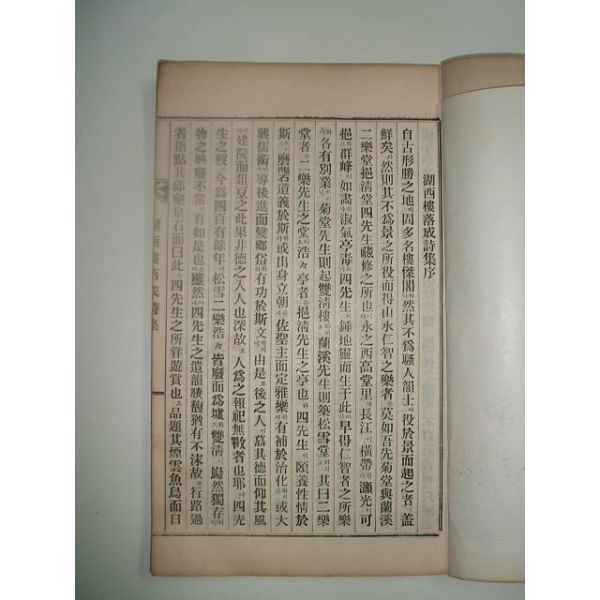 湖西樓落成詩集序
自古形勝之地固多名樓傑閣然其不爲騷人韻士役於景而起之者盖
鮮矣然則其不爲景之所役而得山水仁智之樂者莫如吾先菊堂與蘭溪
二樂堂挹淸堂四先生藏修之所也永之西高堂里長江橫帶灝光可
挹群峰如畵淑氣亭毒四先生鍾地靈而生于此早得仁智者之所樂
各有別業菊堂先生則起雙淸樓蘭溪先生則築松雪堂其曰二樂
堂者二樂先生之堂浩々亭者挹淸先生之亭也四先生頤養性情於
斯磨礲道義於斯或出身立朝佐聖主而定雅樂有補於治化或大
興儒術導後進而變鄕俗有功於斯文由是後之人慕其德而仰其風
建院而俎豆之此果非德之入人也深故人爲之報祀無斁者也耶四先
生之歿今爲四百有餘年松雪二樂浩々皆廢而爲墟雙淸巋然獨存
物之興廢不常有如是也雖然四先生之遺韻賸馥猶有不沫故行路過
者指點其邱壑泉石而曰此四先生之所嘗遊賞也品題其煙雲魚鳥而曰
湖西樓落成詩集